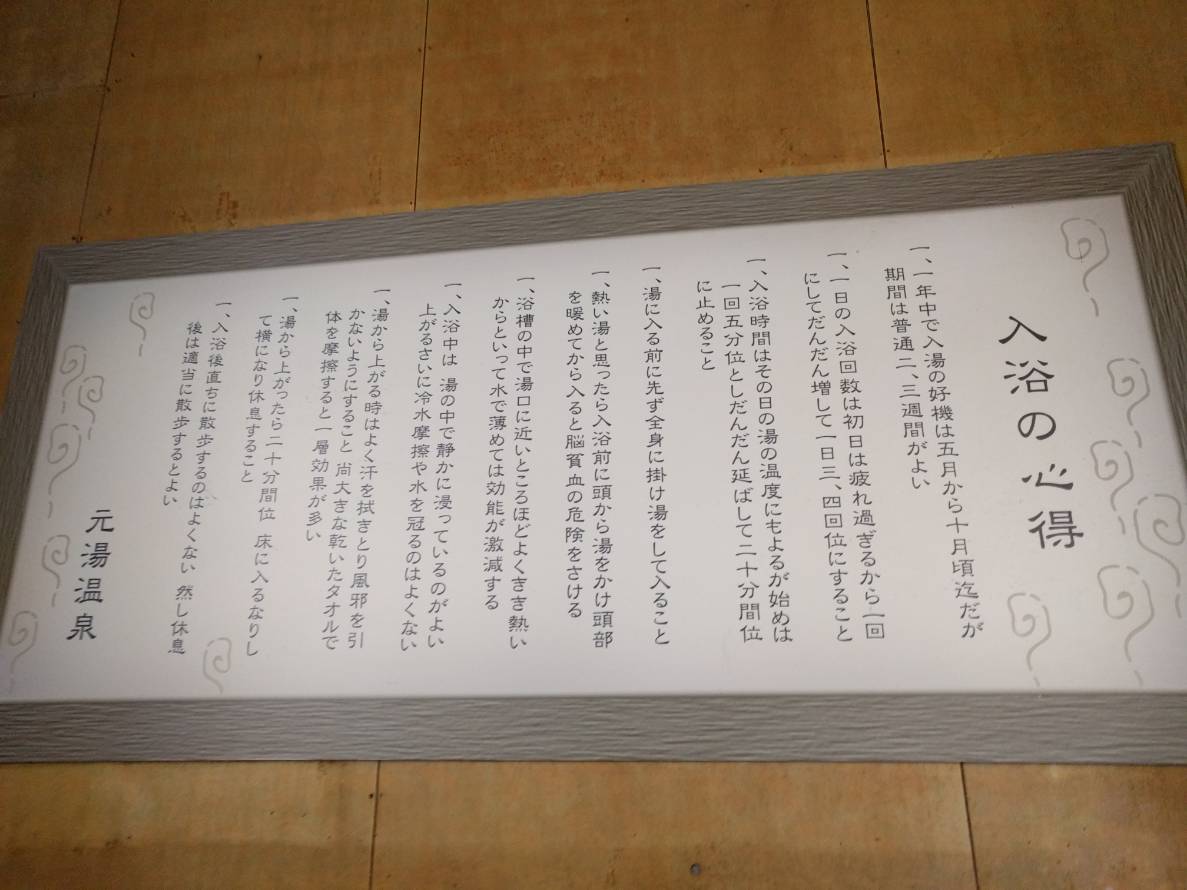 入浴の心得
一、一年中で入湯の好機は五月から十月頃迄だが
期間は普通二、三週間がよい
一、一日の入浴回数は初日は疲れ過ぎるから一回
にしてだんだん増して一日三、四回位にすること
一、入浴時間はその日の湯の温度にもよるが始めは
一回五分位としだんだん延ばして二十分間位
に止めること
一、湯に入る前に先ず全身に掛け湯をして入ること
一、熱い湯と思ったら入浴前に頭から湯をかけ頭部
を暖めてから入ると脳貧血の危険をさける
一、浴槽の中で湯口に近いところほどよくきき熱い
からといって水で薄めては効能が激減する
一、入浴中は 湯の中で静かに浸っているのがよい
上がるさいに冷水摩擦や水を冠るのはよくない
一、湯から上がる時はよく汗を拭きとり風邪を引
かないようにすること 尚大きな乾いたタオルで
体を摩擦すると一層効果が多い
一、湯から上がったら二十分間位 床に入るなりし
て横になり休息すること
一、入浴後直ちに散歩するのはよくない 然し休息
後は適当に散歩するとよい
元湯温泉